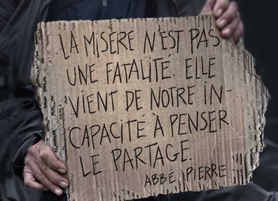 LA MISÈRE N'EST PAS
UNE FATALITÉ. ELLE
VIENT DE NOTRE IN-
CAPACITÉ À PENSER
LE PARTAGE.
ABBÉ PIERRE